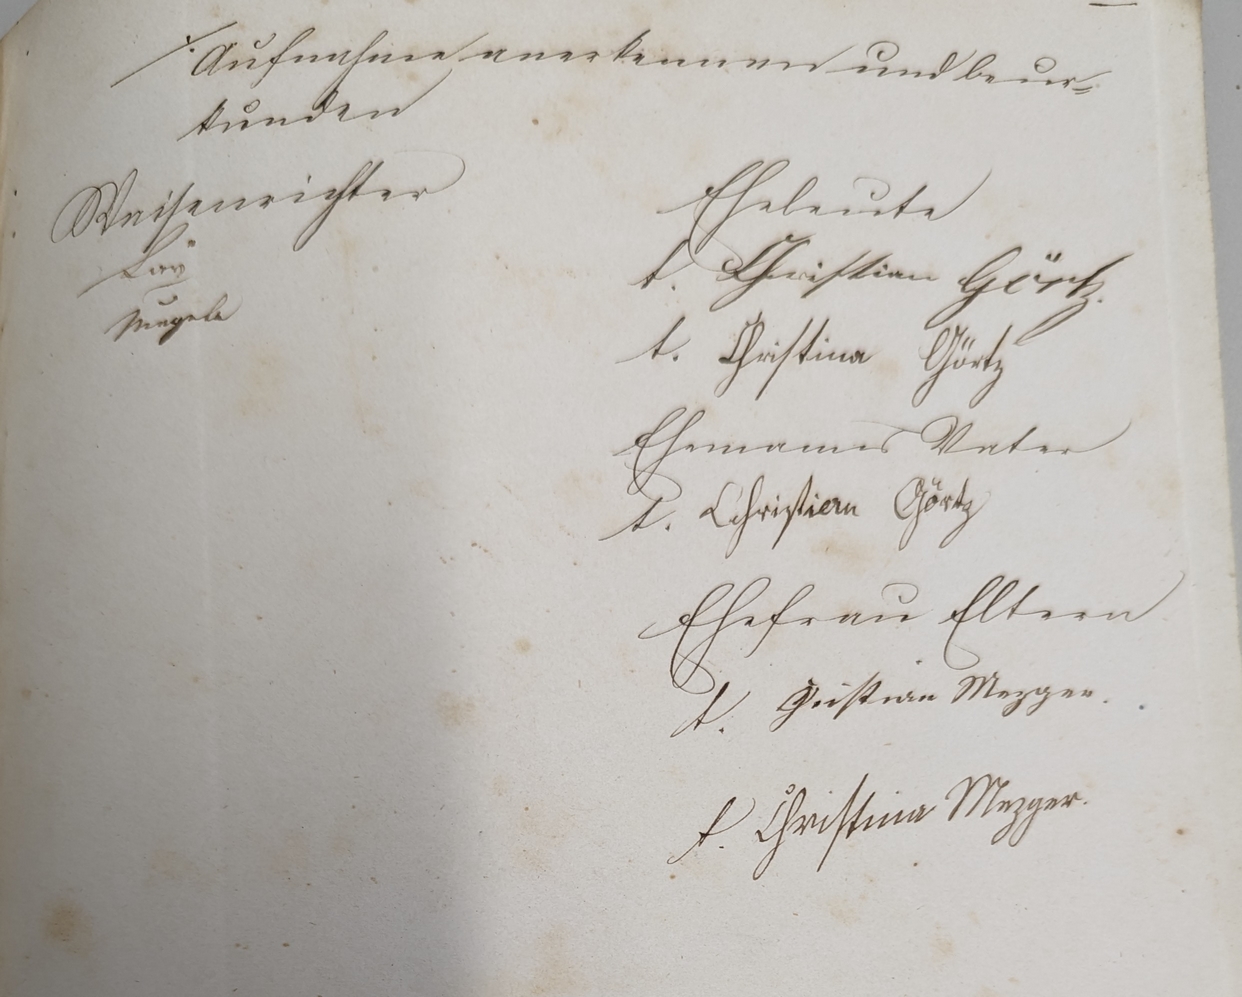 ./. Aufnahme anerkennen und beur=
kunden
Waisenrichter
Lay
Nägele
Eheleute
t. Christian Görtz.
t. Christina Görtz
Ehemanns Vater
t. Christian Görtz
Ehefrau Eltern
t. Cristian Mezger.
t. Christina Mezger.